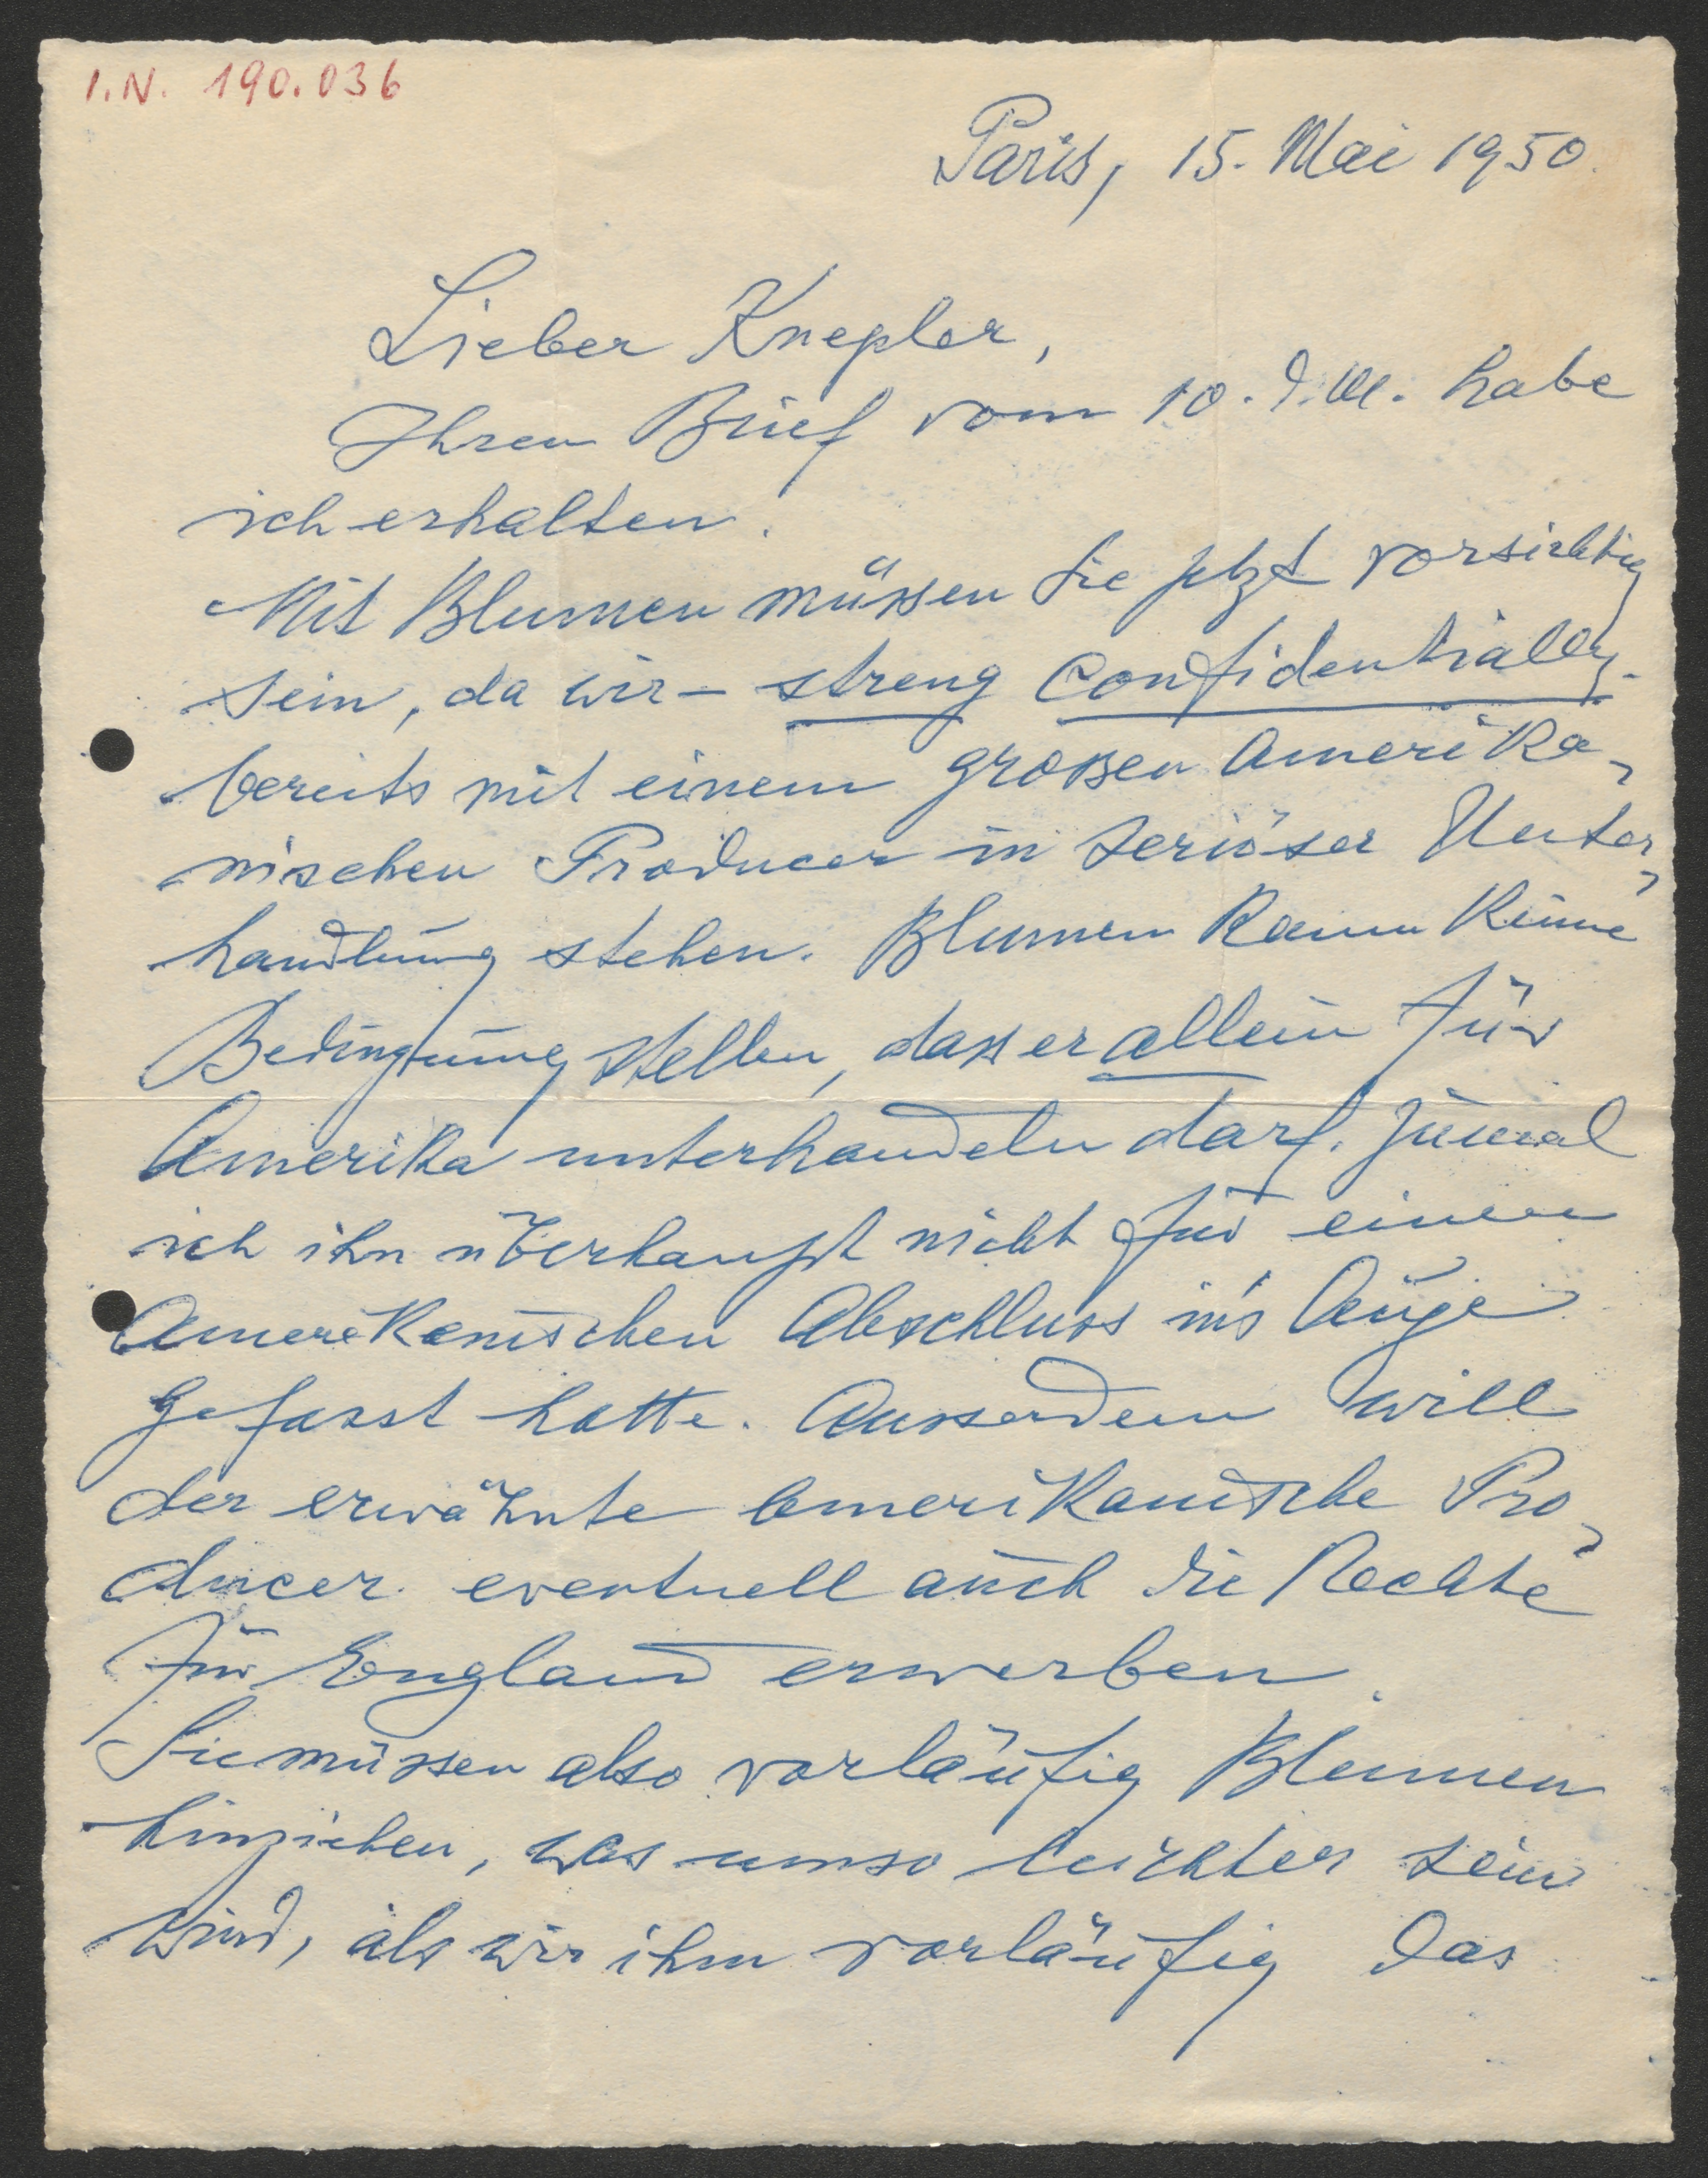 I.N. 190.036
Paris, 15. Mai 1950.
Lieber Knepler,
Ihren Brief vom 10. d. M. habe
ich erhalten.
Mit Blumen müssen Sie jetzt vorsichtig
sein, da wir – streng confidentially –
bereits mit einem grossen amerika-
nischen Producer in seriöser Unter-
handlung stehen. Blumen kann keine
Bedingung stellen, dass er allein für
Amerika unterhandeln darf. Zumal
ich ihn überhaupt nicht für einen
amerikanischen Abschluss in's Auge
gefasst hatte. Ausserdem will
der erwähnte amerikanische Pro-
ducer eventuell auch die Rechte
für England erwerben.
Sie müssen also vorläufig Blumen
hinziehen, was umso leichter sein
wird, als wir ihm vorläufig das